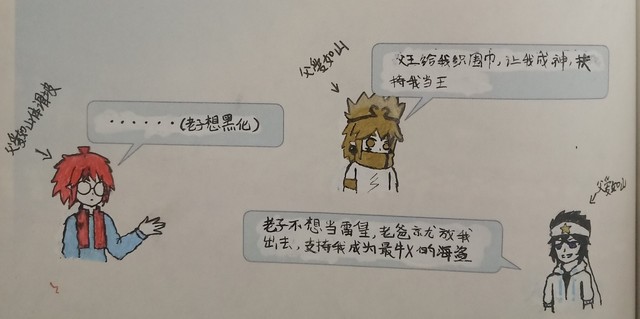 父王给我织围巾，让我成神，扶
持我当王
父爱如山
······(老子想黑化)
父爱如山体滑坡
父爱如山
老子不想当雷皇，老爸就放我
出去，支持我成为最牛X的海盗